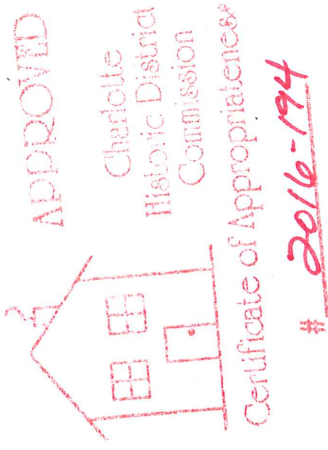 APPROVED
Charlotte
Historic District
Commission
Certificate of Appropriateness
# 2016-194